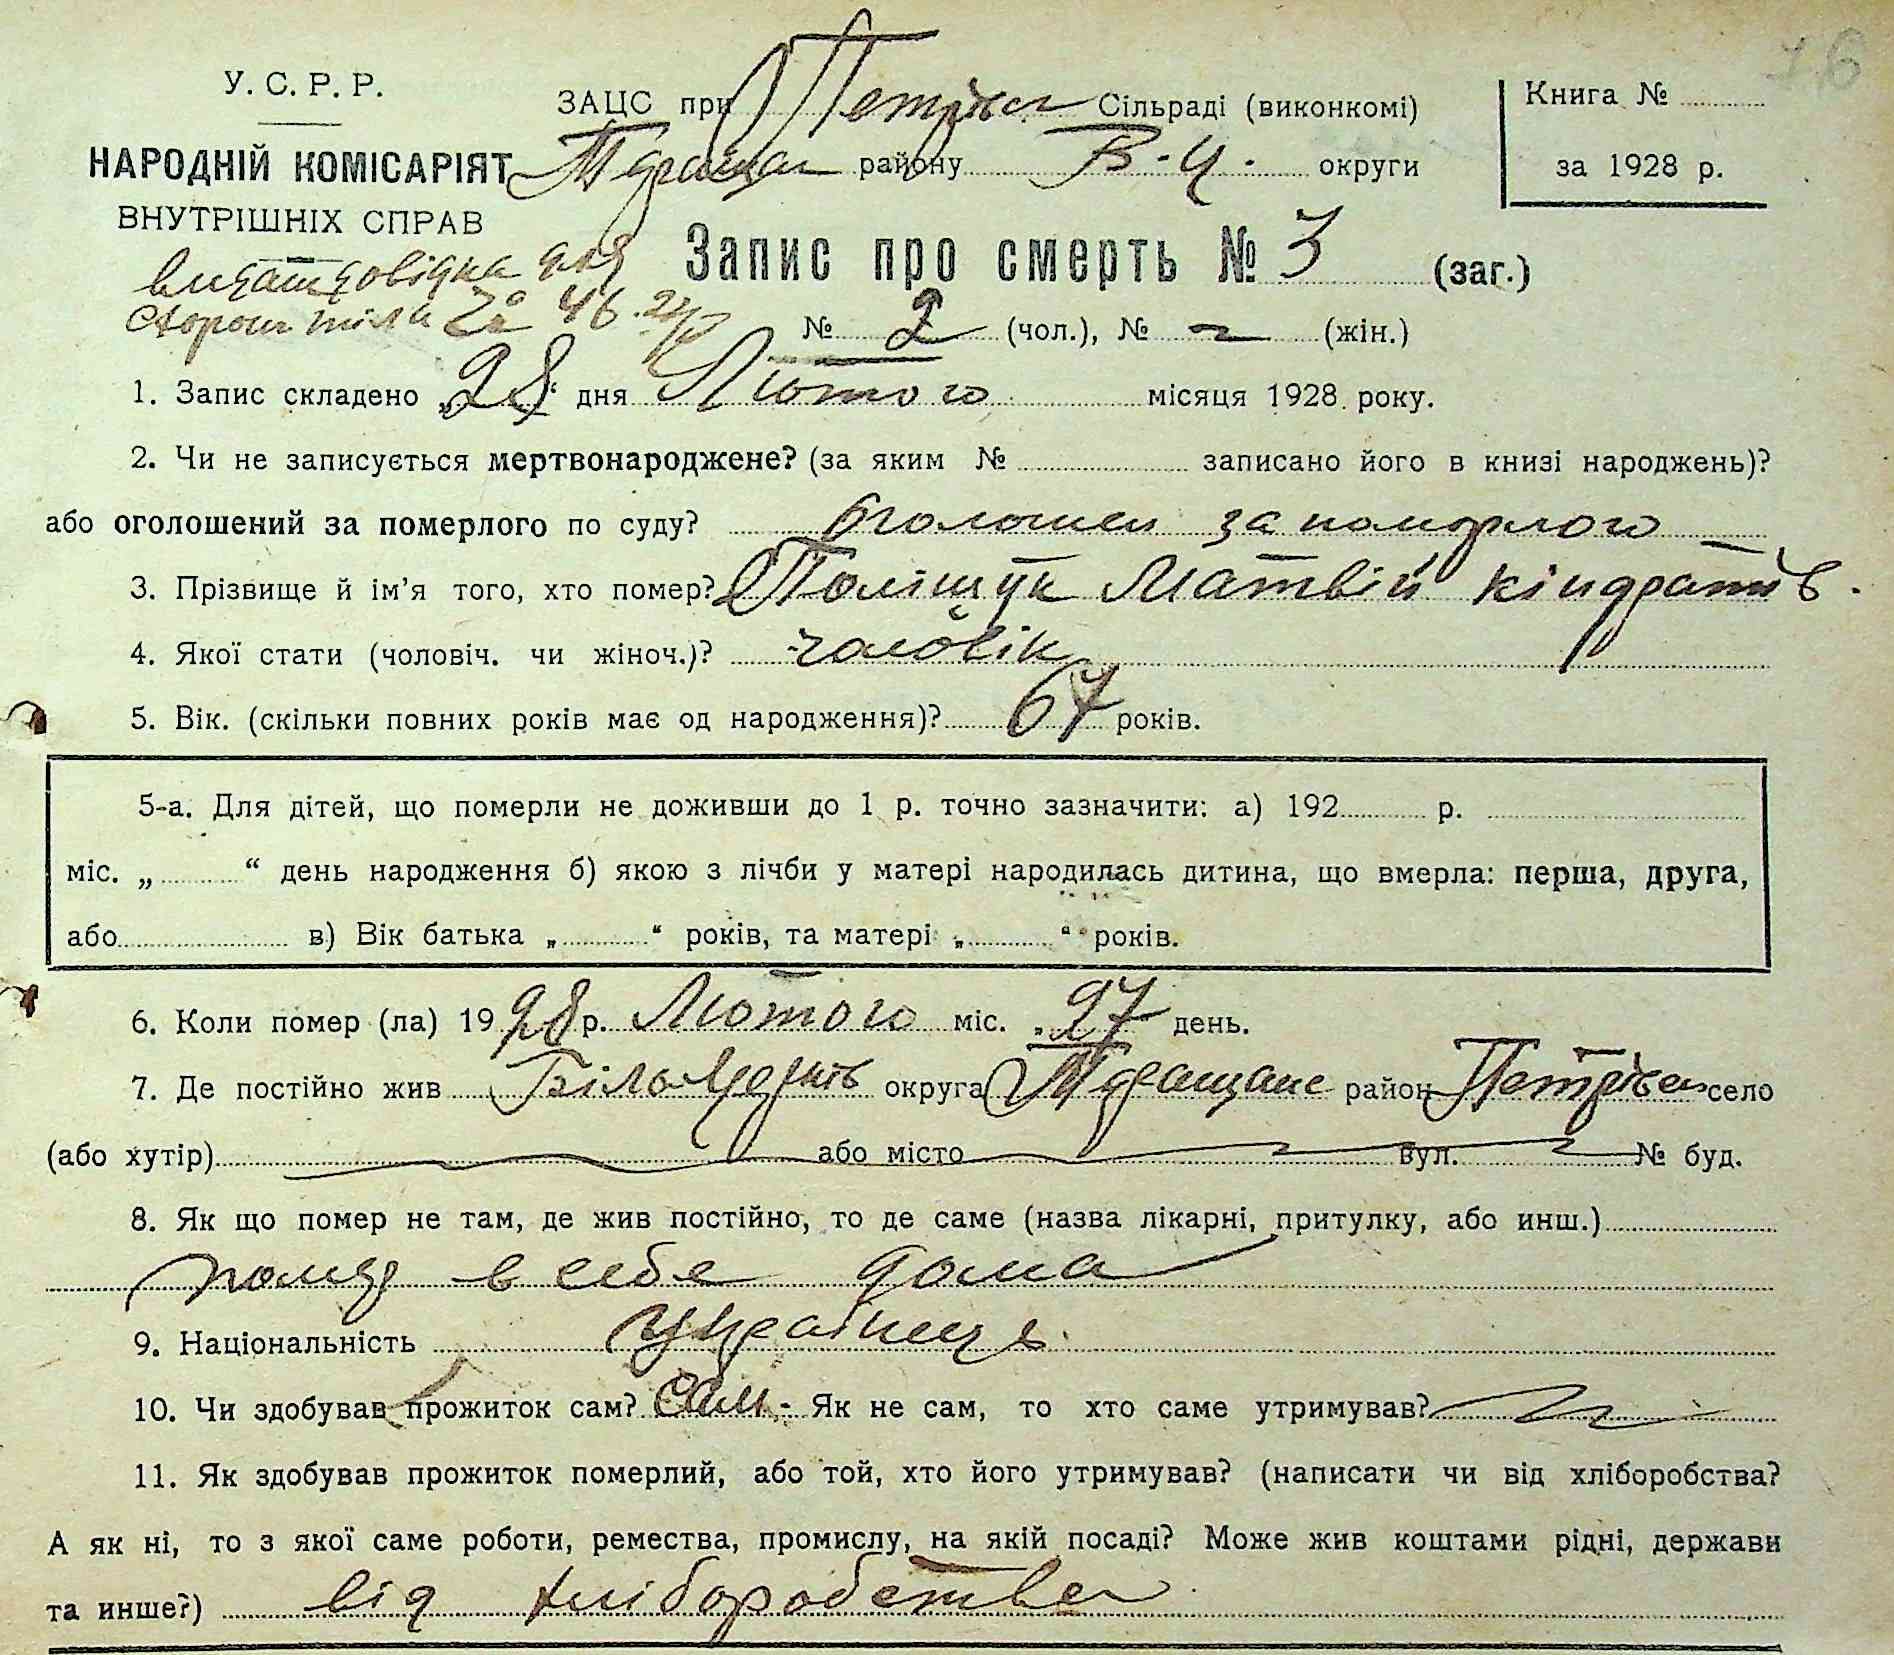 16
У. С. Р. Р.
ЗАЦС при Петрівск Сільраді (виконкомі)
Книга №
НАРОДНІЙ КОМІСАРІЯТ Таращан району Б-Ц. округи
за 1928 р.
ВНУТРІШНІХ СПРАВ
Запис про смерть № 3 (заг.)
видат довідка для
схорон тіла за 46
№ 2 (чол.), № – (жін.)
1. Запис складено „28“ дня Лютого місяця 1928 року.
2. Чи не записується мертвонароджене? (за яким № записано його в книзі народжень)?
або оголошений за померлого по суду? оголошен за помэрлого
3. Прізвище й ім’я того, хто помер? Поліщук Матвій Кіндратів.
4. Якої стати (чоловіч. чи жіноч.)? чаловік
5. Вік. (скільки повних років має од народження)? 67 років.
5-а. Для дітей, що померли не доживши до 1 р. точно зазначити: а) 192 р.
міс. „ “ день народження б) якою з лічби у матері народилась дитина, що вмерла: перша, друга,
або в) Вік батька „ “ років, та матері „ “ років.
6. Коли помер (ла) 1928 р. Лютого міс. „27“ день.
7. Де постійно жив Більоцерків округа Таращанс район Петрівка село
(або хутір) або місто вул. № буд.
8. Як що помер не там, де жив постійно, то де саме (назва лікарні, притулку, або инш.)
помер в себе дома
9. Національність Українець.
10. Чи здобував прожиток сам? Сам.- Як не сам, то хто саме утримував? –
11. Як здобував прожиток померлий, або той, хто його утримував? (написати чи від хліборобства?
А як ні, то з якої саме роботи, ремества, промислу, на якій посаді? Може жив коштами рідні, держави
та инше?) від хліборобства